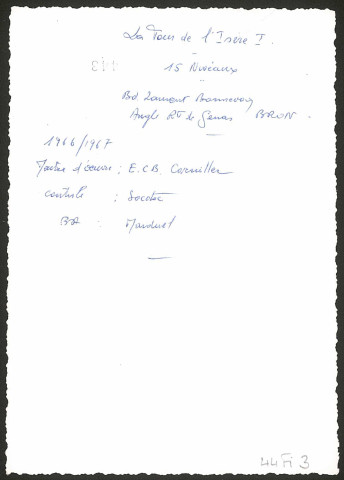 La Tour de l'Isere I.
15 Niveaux
Bd Laurent Bonnevay
Angle Rte de Genas BRON.
1966/1967
Maître d'œuvre : E.C.B. Cornillon
contrôle : Socotec
BA :
44 Fi 3